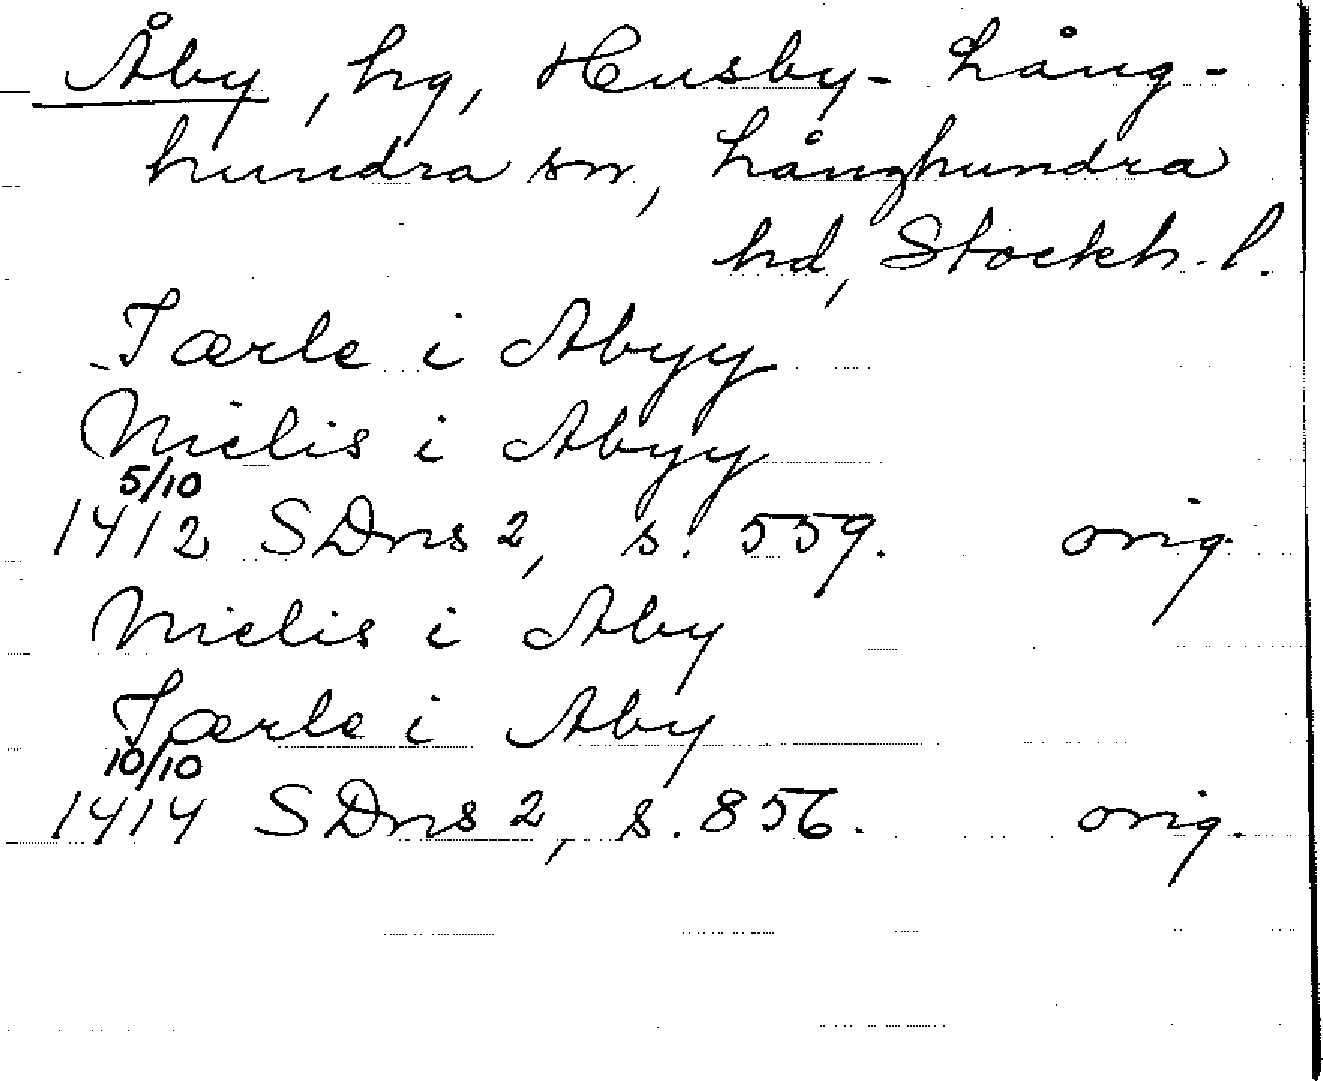 Åby, hg, Husby-Lång-
hundra sn, Långhundra
hd, Stockh. l.
Iærle i Abyy
Nielis i Abyy
5/10
1412 SDns 2, s. 559. orig.
Nielis i Aby
Iærle i Aby
10/10
1414 SDns 2, s. 856. orig.